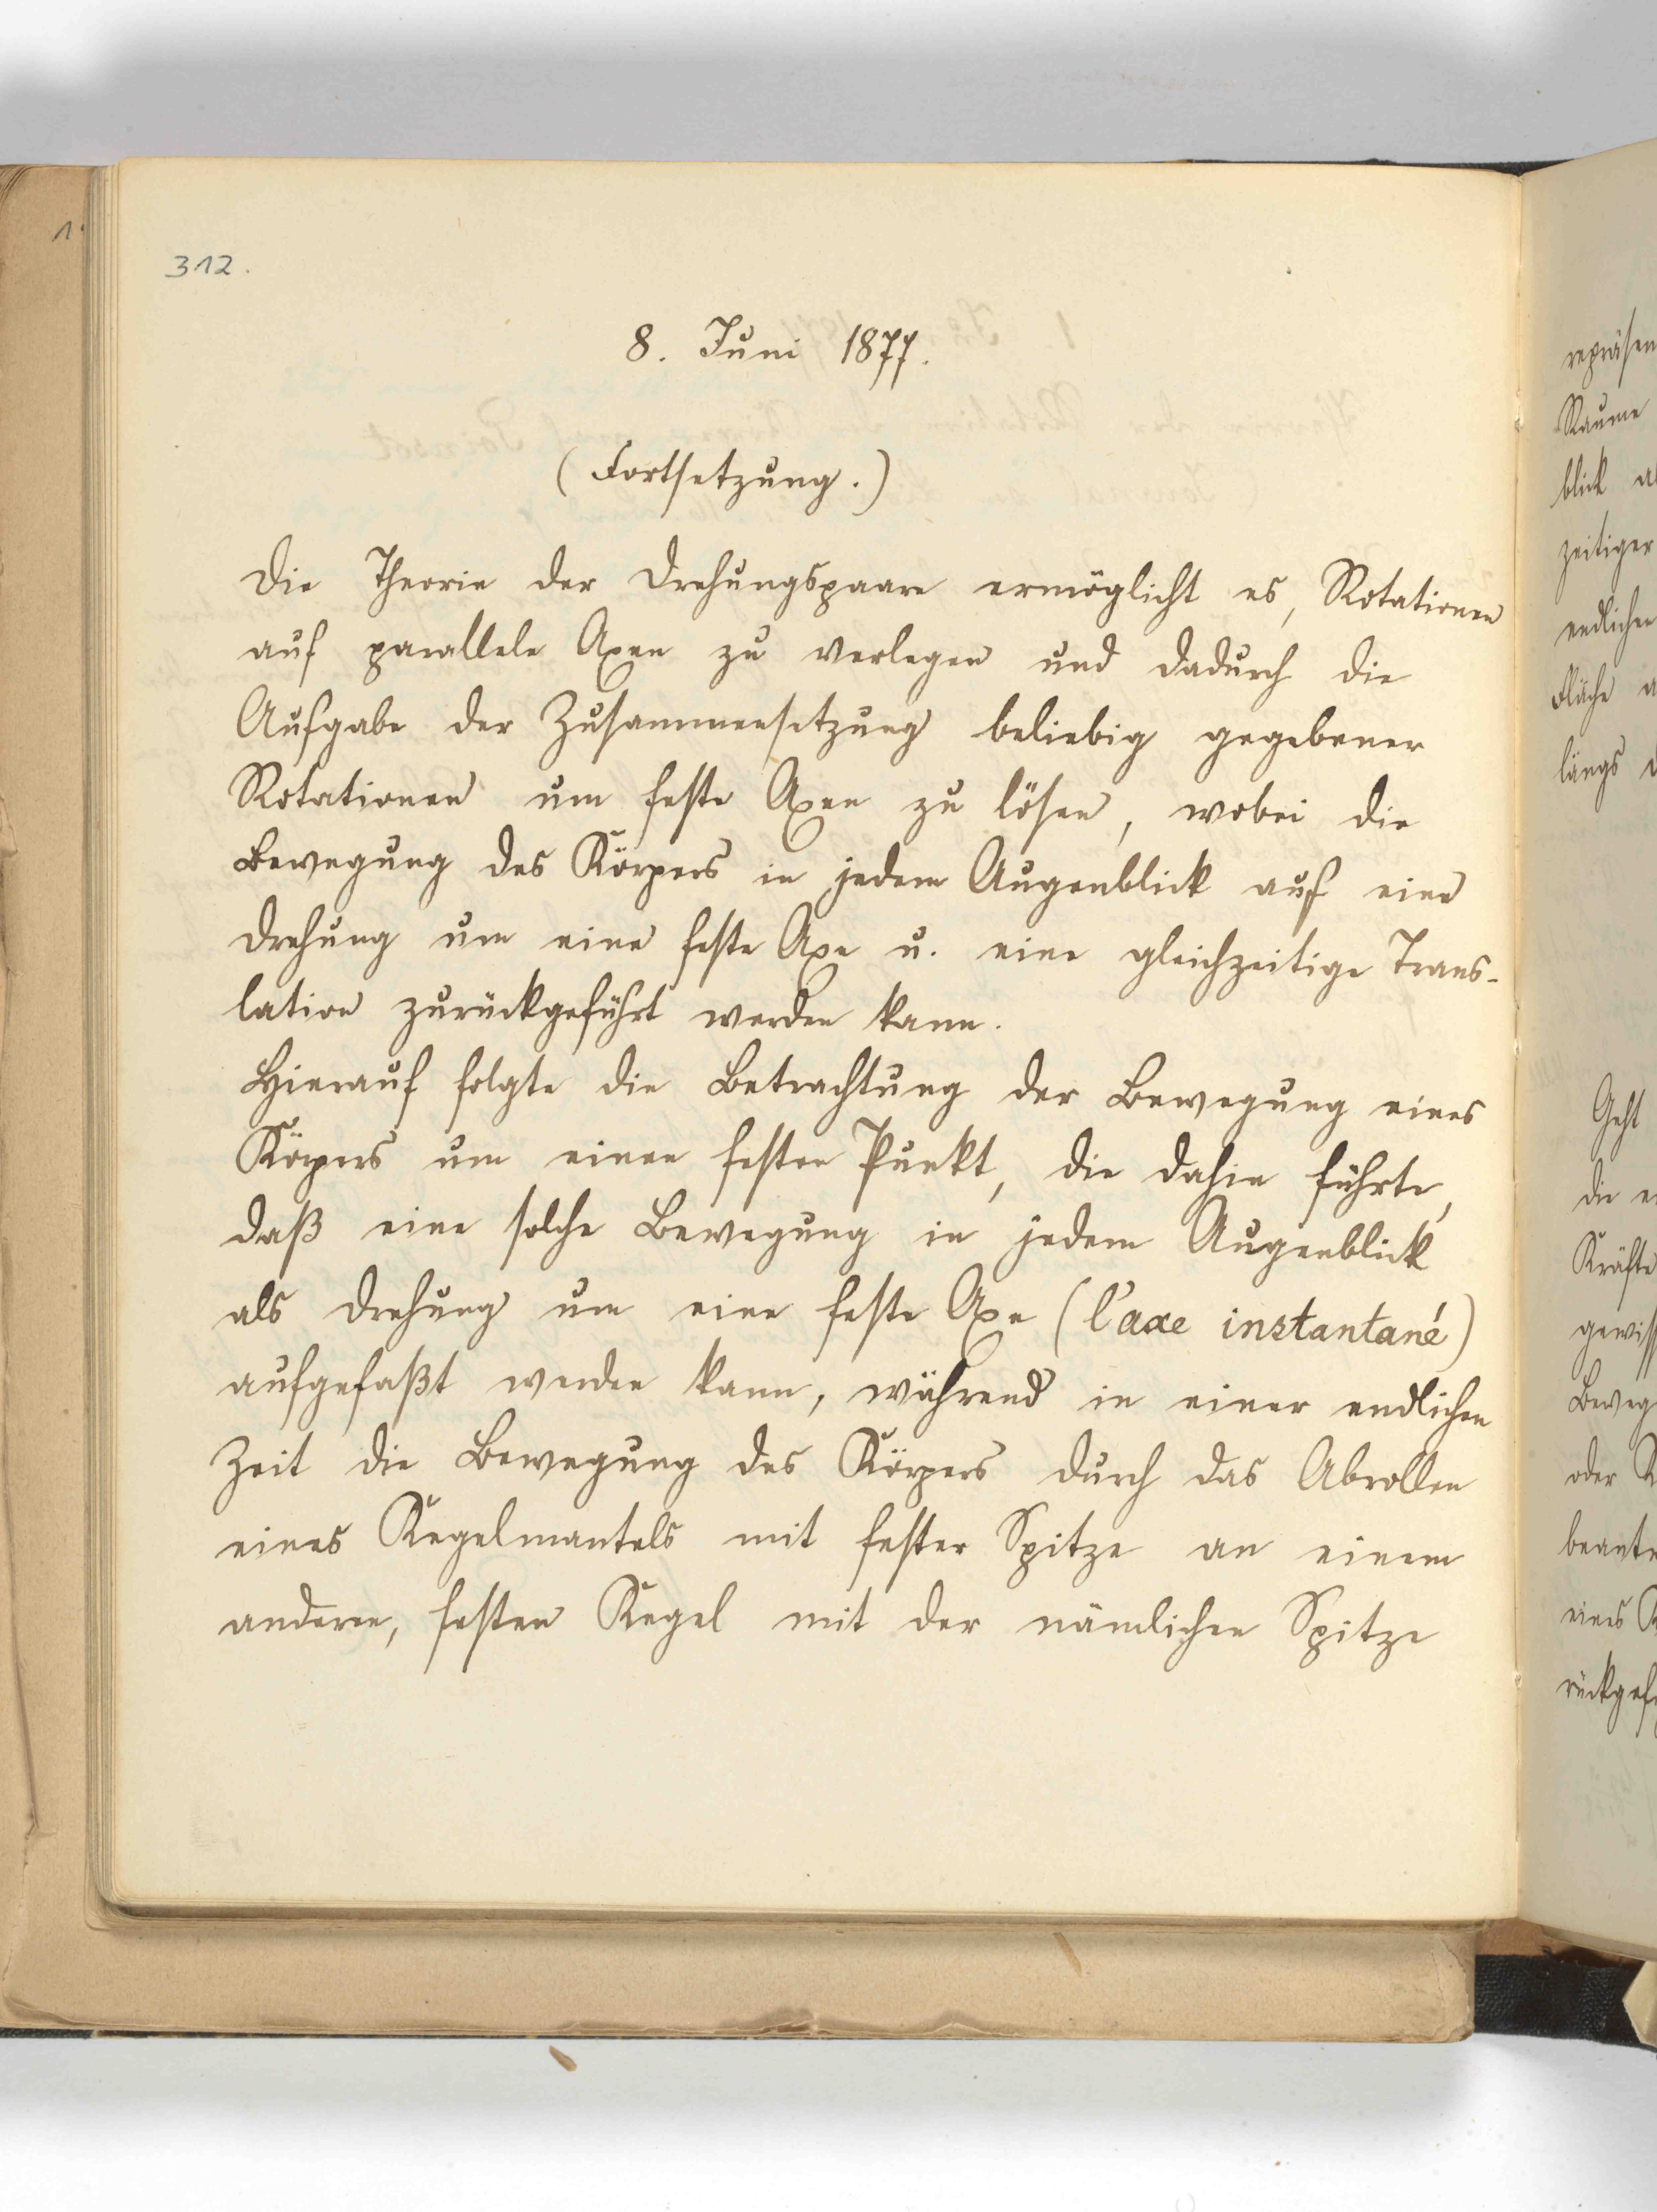 312.
8. Juni 1877.
(Fortsetzung.)
Die Theorie der Drehungspaare ermöglicht es, Rotationen
auf parallele Axen zu verlegen und dadurch die
Aufgabe der Zusammensetzung beliebig gegebener
Rotationen um feste Axen zu lösen, wobei die
Bewegung des Körpers in jedem Augenblick auf eine
Drehung um eine feste Axe u. eine gleichzeitige Trans-
lation zurückgeführt werden kann.
Hierauf folgte die Betrachtung der Bewegung eines
Körpers um einen festen Punkt, die dahin führte,
daß eine solche Bewegung in jedem Augenblick
als Drehung um eine feste Axe (l'axe instantané)
aufgefaßt werden kann, während in einer endlichen
Zeit die Bewegung des Körpers durch das Abrollen
eines Kegelmantels mit fester Spitze an einem
anderen, festen Kegel mit der nämlichen Spitze
repräsen
Raume
blick
zeitiger
endlichen
Fläche
längs
Geht
die
Kräfte
gewiss
Beweg
oder
beant
eines
rückgef